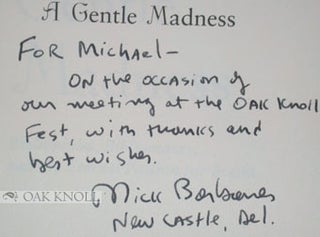 A Gentle Madness
FOR Michael –
ON the occasion of
our meeting at the OAK Knoll
Fest, with thanks and
best wishes.
Nick Basbanes
New Castle, Del.
OAK KNOLL